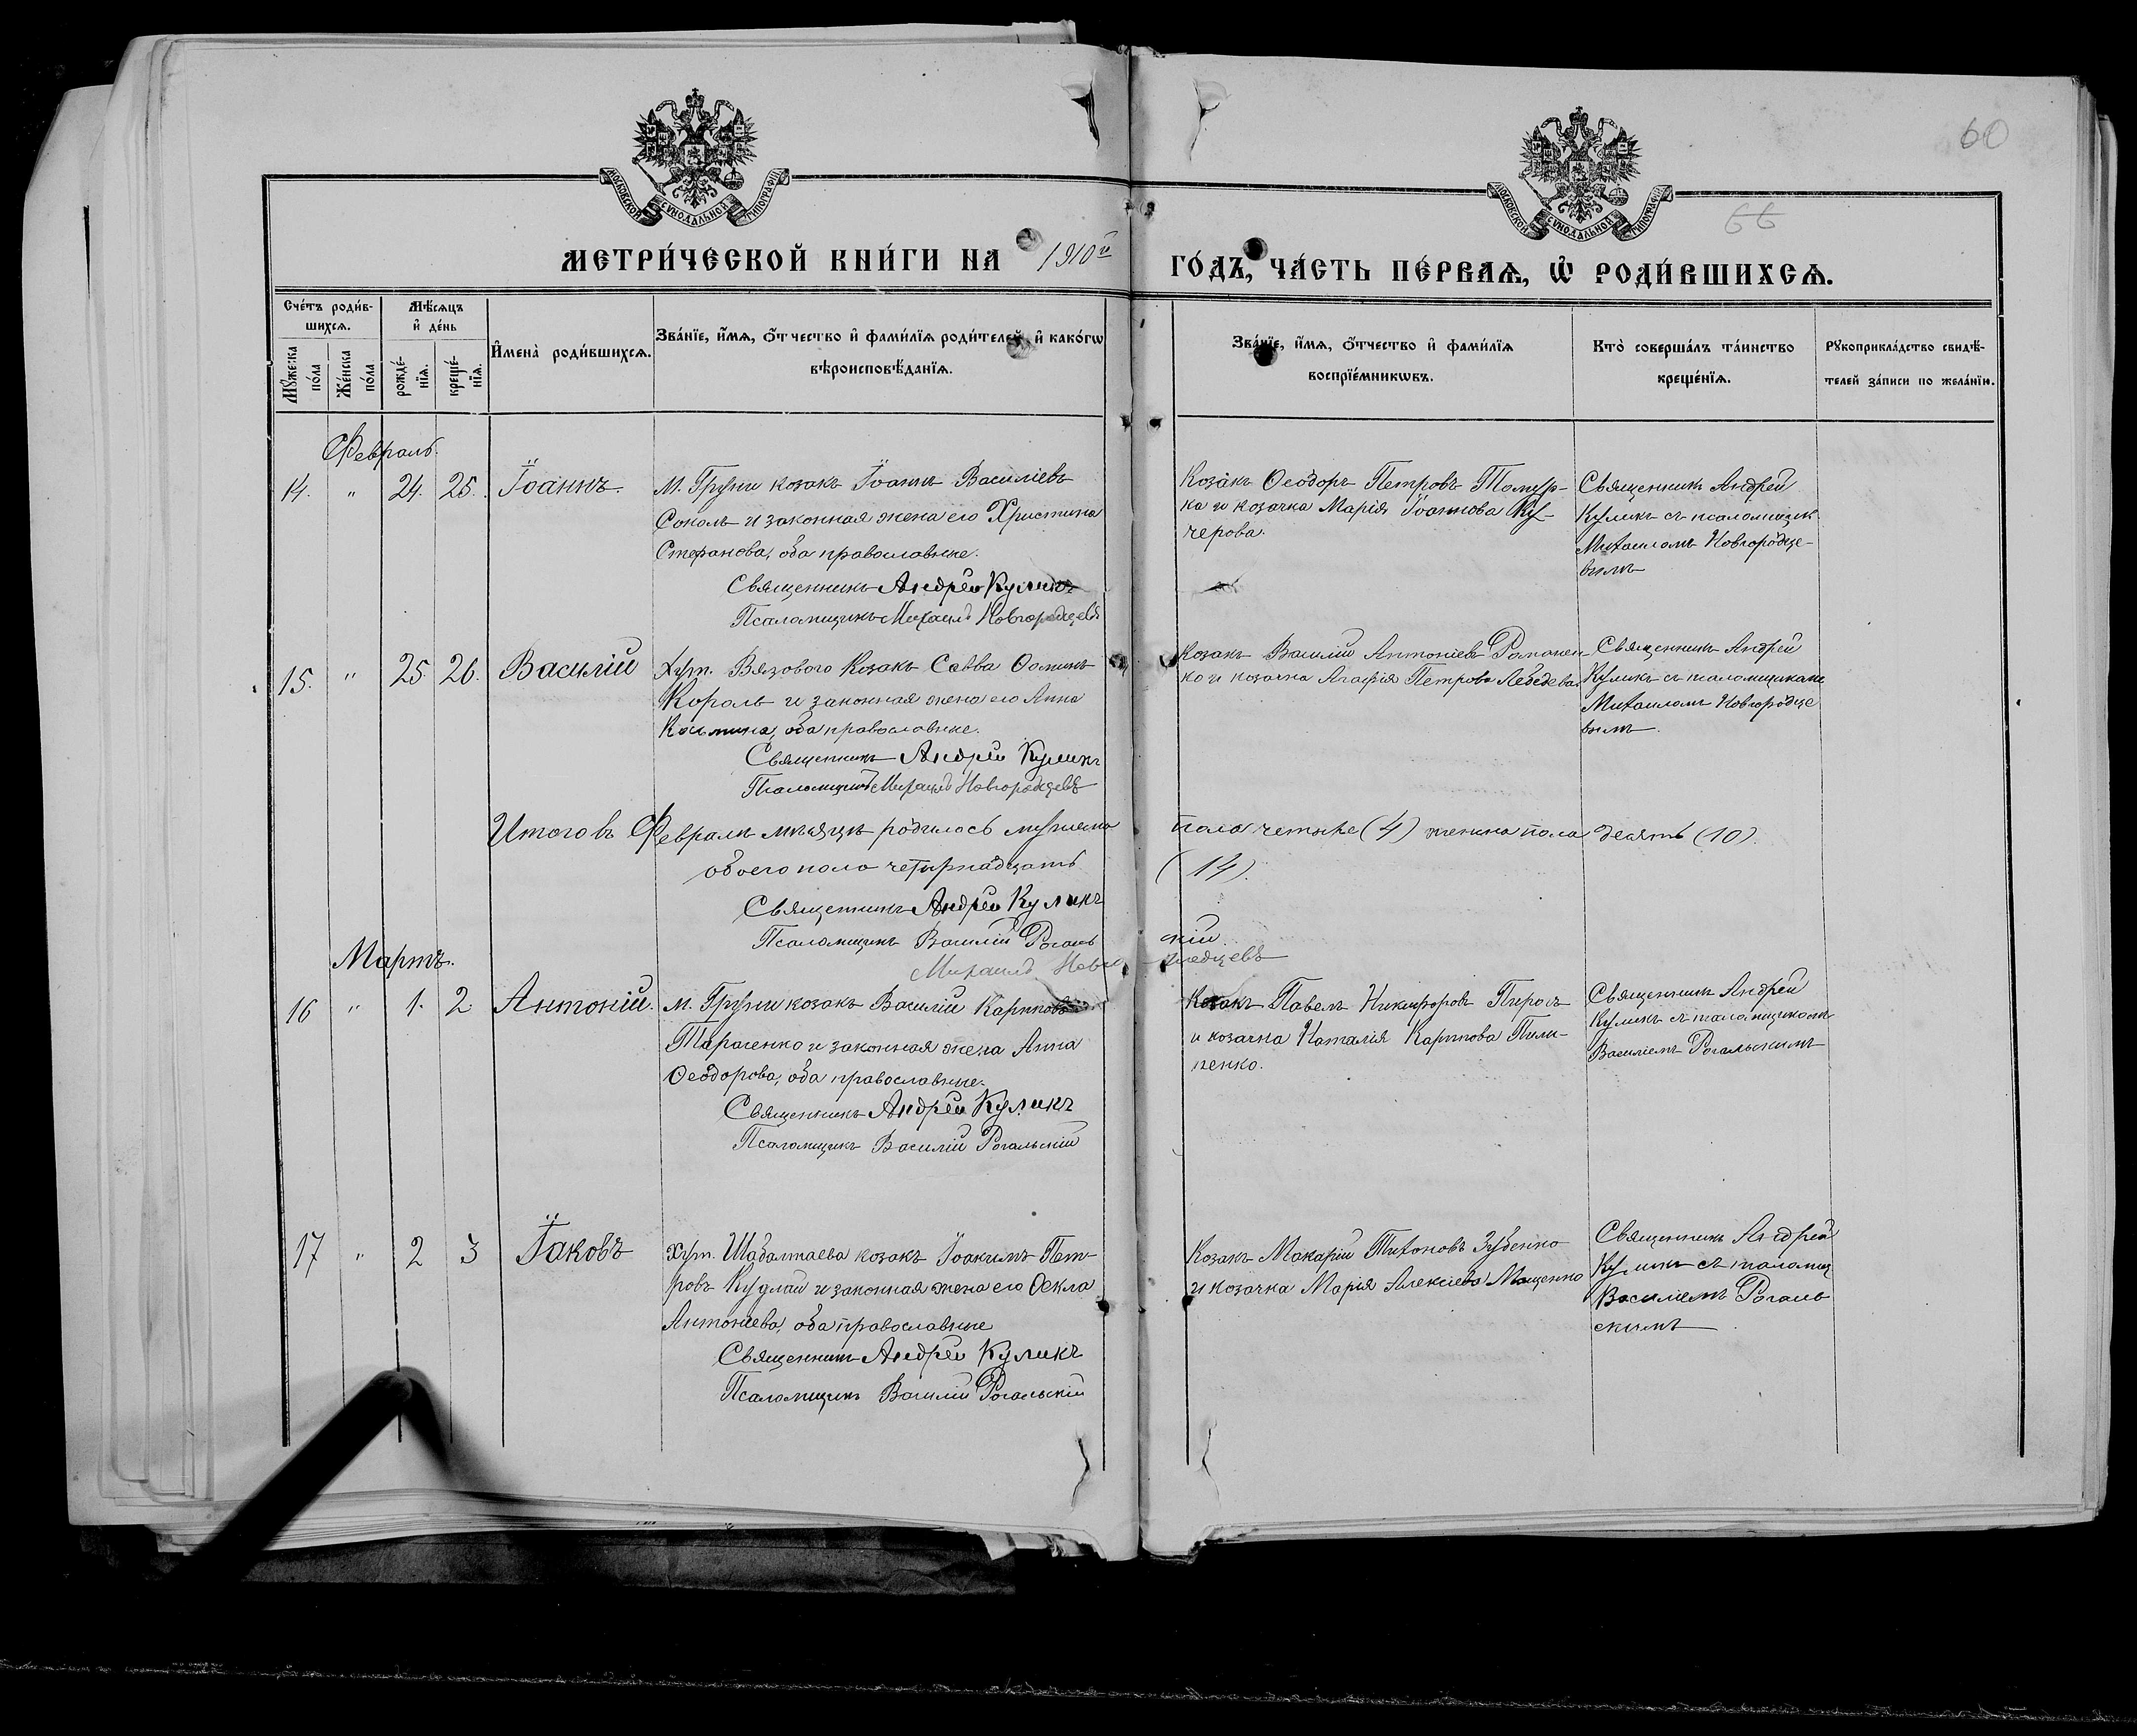 60
МОСКОВСКОЙ СѴНОДАЛЬНОЙ ТИПОГРАФІИ
МОСКОВСКОЙ СѴНОДАЛЬНОЙ ТИПОГРАФІИ
66
МЕТРИ́ЧЕСКОЙ КНИ́ГИ НА 1910й ГО́ДЪ, ЧА́СТЬ ПЕ́РВАѦ, Ѡ҆ РОДИ́ВШИХСѦ.
Сче́тъ роди́в-
шихсѧ.
Мѣ́сѧцъ
и҆ де́нь
Мꙋ́жеска
по́ла
Же́нска
по́ла
рожде́-
нїѧ.
креще́-
нїѧ.
И҆мена̀ роди́вшихсѧ.
Зва́нїе, и҆́мѧ, ѻ҆́тчество и҆ фами́лїѧ роди́телей, и҆ како́гѡ
вѣроисповѣ́данїѧ.
Зва́нїе, и҆́мѧ, ѻ҆́тчество и҆ фами́лїѧ
воспрїе́мникѡвъ.
Кто̀ соверша́лъ та́инство
креще́нїѧ.
Рꙋкоприкла́дство свидѣ́-
телей за́писи по жела́нїю.
Февраль.
14. " 24. 25. Іоаннъ.
м. Груни козакъ Іоаннъ Василіевъ
Соколъ и законная жена его Христина
Стефанова, оба православные.
Священникъ Андрей Куликъ
Псаломщикъ Михаилъ Новгородцевъ
Козакъ Ѳеодоръ Петровъ
ка и козачка Марія Іоаннова Ку-
черова.
Священникъ Андрей
Куликъ съ псаломщик
Михаиломъ Новгородце-
вымъ
15. " 25. 26. Василій
Хут. Вязового Козакъ Савва Ѳоминъ
Король и законная жена его Анна
Косьмина, оба православные.
Священникъ Андрей Куликъ
Псаломщикъ Михаилъ Новгородцевъ
Козакъ Василій Антоніевъ Романен
ко и козачка Агафія Петрова Лебедева.
Священникъ Андрей
Куликъ съ псаломщикомъ
Михаиломъ Новгородце
вымъ.
Итого въ Февралѣ мѣсяцѣ родилось мужеска пола четыре (4) женска пола десять (10).
обоего пола четырнадцать (14).
Священникъ Андрей Куликъ
Псаломщикъ Василій Рогальскій
Михаилъ Новгородцевъ
Мартъ.
16 " 1. 2 Антоній.
м. Груни козакъ Василій Карповъ
Тарасенко и законная жена Анна
Ѳеодорова, оба православные.
Священникъ Андрей Куликъ
Псаломщикъ Василій Рогальскій
Козакъ Павелъ Никифоровъ Пироль
и козачка Наталія Карпова Пили-
пенко.
Священникъ Андрей
Куликъ съ псаломщикомъ
Василіемъ Рогальскимъ
17 " 2 3 Іаковъ
хут. Шабалтаева козакъ Іоакимъ Пет-
ровъ Кудлай и законная жена его Ѳекла
Антоніева, оба православные
Священникъ Андрей Куликъ
Псаломщикъ Василій Рогальскій
Козакъ Макарій Тихоновъ Зубенко
и козачка Марія Алексіева Мащенко
Священникъ Андрей
Куликъ съ псаломщ
Василіемъ Рогаль
скимъ